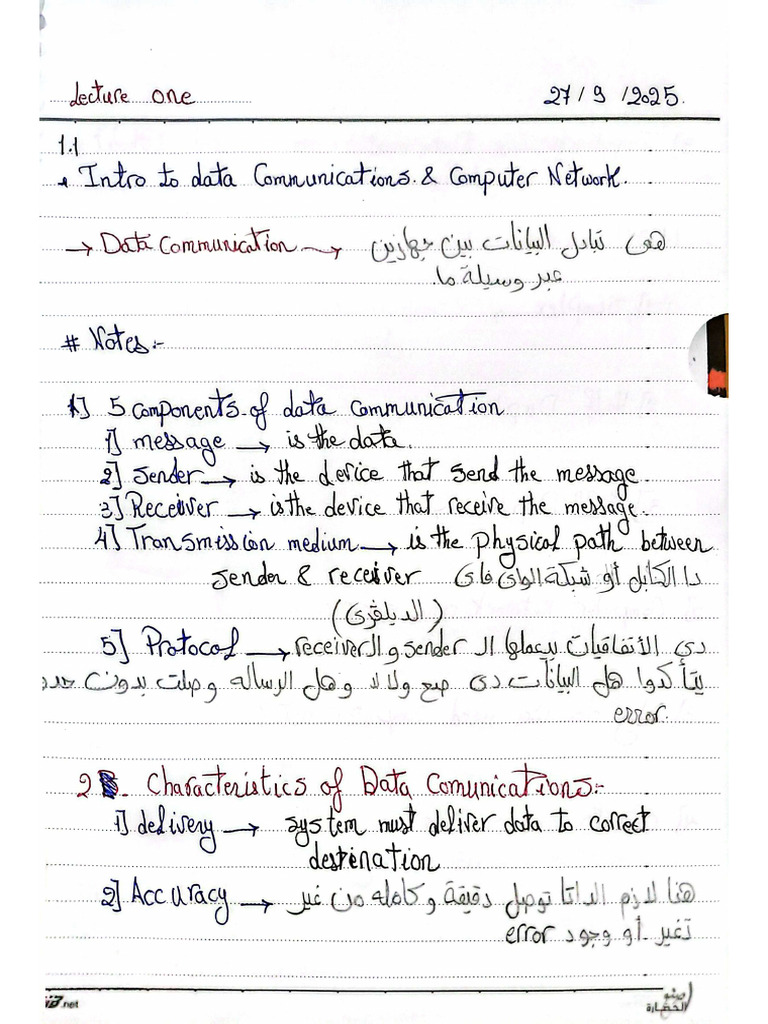 Lecture one 27 / 9 / 2025.
1.1
Intro to data Communications & Computer Network.
→ Data Communication → هى تبادل البيانات بين جهازين
عبر وسيلة ما.
# Notes:-
1] 5 components of data communication
1] message → is the data.
2] Sender → is the device that send the message.
3] Receiver → is the device that receive the message.
4] Transmission medium → is the physical path between
sender & receiver دا الكابل أو شبكة الواى فاى
(الديلڤرى)
5] Protocol → دي الأتفاقيات بيعملها الـ sender و الـ receiver
يتأكدوا هل البيانات دى صح ولا لا وهل الرساله وصلت بدون حدو
error.
2 . Characteristics of Data Comunications:-
1] delivery → system must deliver data to correct
destenation
2] Accuracy → هنا لازم الداتا توصل دقيقة و كامله من غير
تغير أو وجود error.
.net
الحضارة